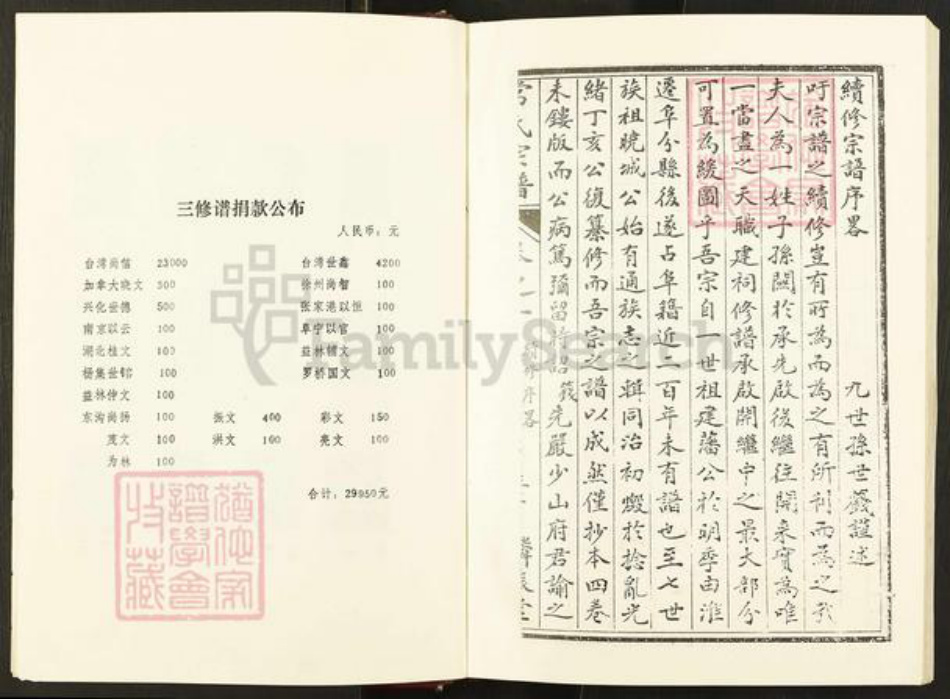 三修谱捐款公布
人民币：元
台湾尚信 23000 台湾世鑫 4200
加拿大晓文 300 徐州尚智 100
兴化世德 500 张家港以恒 100
南京以云 100 阜宁以官 100
湖北桂文 100 益林辅文 100
杨集世锦 100 罗桥国文 100
益林仲文 100
东沟尚扬 100 振文 400 彩文 150
茂文 100 洪文 100 亮文 100
为林 100
合计：29950元
續修宗譜序畧
九世孫世籛謹述
吁宗譜之續修豈有所為而為之有所利而為之哉
夫人為一姓子孫關於承先啟後繼往開來實為唯
一當盡之天職建祠修譜承啟開繼中之最大部分
可置為緩圖乎吾宗自一世祖建藩公於明季由淮
遷阜分縣後遂占阜籍近二百年未有譜也至七世
族祖曉城公始有通族志之輯同治初燬於捻亂光
緒丁亥公復纂修而吾宗之譜以成然僅抄本四卷
未鏤版而公病篤彌留時詔籛先嚴少山府君諭之
氏宗譜
序畧
FamilySearch